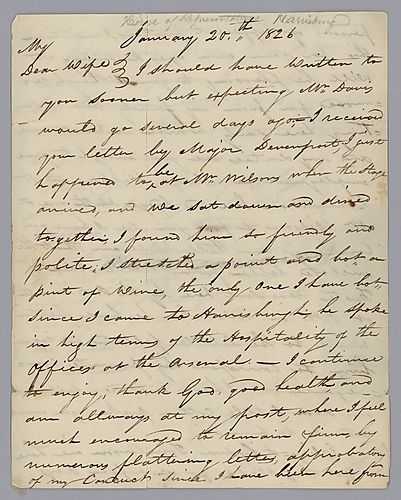 House of Representatives Harrisburg
January 20.th 1826
My
Dear Wife } I should have written to
you sooner but expecting Mr Davis
would go several days ago— I received
your letter by Major Devenport I just
happened to be at Mr. Wilsons when the Stage
arived, and we sat down and dined
together, I found him so friendly and
polite, I stretched a point and bot a
pint of wine, the only one I have bot
Since I came to Harrisburgh, he spoke
in high terms of the Hospitality of the
Officers at the Arsenal — I continue
to enjoy, thank God, good health and
am allways at my post, where I feel
much encouraged to remain firm, by
numerous flattering letters, approbatory
of my Conduct Since I have been here from